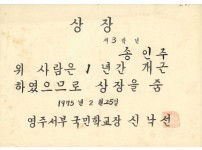 상 장
제 3 학년
송 인 주
위 사람은 1 년간 개근
하였으므로 상장을 줌
1975 년 2 월 25일
영주서부 국민학교장 신 낙 선